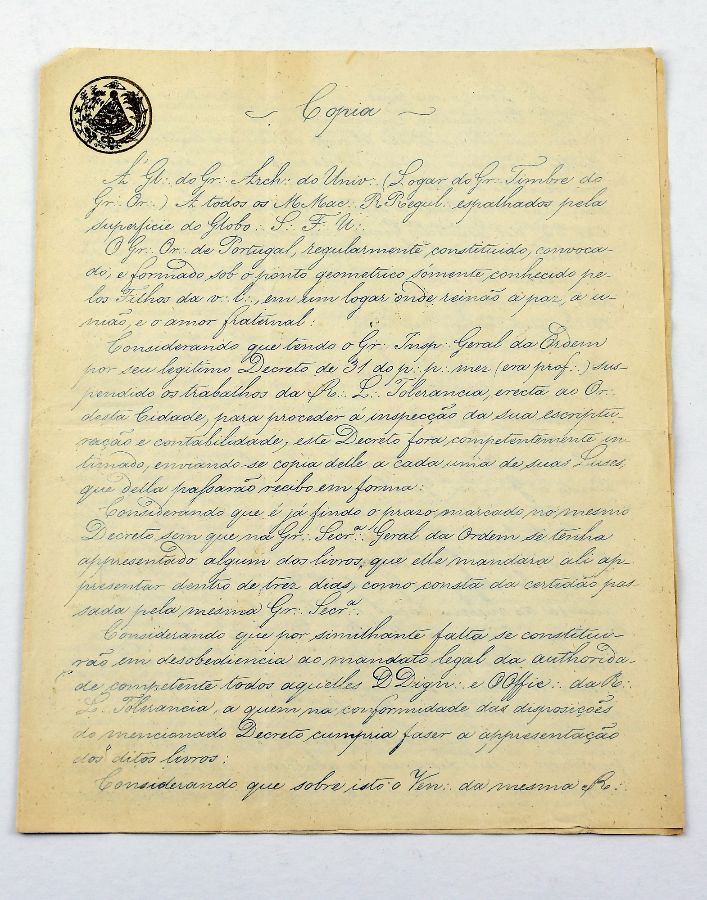 Copia
Á Gl∴ do Gr∴ Arch∴ do Univ∴ (Logar do Gr∴ Timbre do
Gr∴ Or∴) A todos os MMac∴ RRegul∴ espalhados pela
superficie do Globo S∴ F∴ U∴
O Gr∴ Or∴ de Portugal, regularmente constituido, convoca-
do, e formado sob o ponto geometrico somente conhecido pe-
los Filhos da v∴ l∴, em um logar onde reinão a paz, a u-
nião, e o amor fraternal:
Considerando que tendo o Gr∴ Insp∴ Geral da Ordem
por seu legitimo Decreto de 31 do p∴ p∴ mez (era prof∴) sus-
pendido os trabalhos da R∴ L∴ Tolerancia, erecta ao Or∴
desta Cidade, para proceder á inspecção da sua escriptu-
ração e contabilidade, este Decreto fora competentemente in-
timado, enviando-se copia delle a cada uma de suas Luses,
que della passarão recibo em forma:
Considerando que é já findo o prazo marcado no mesmo
Decreto sem que na Gr∴ Secr.ª Geral da Ordem se tenha
appresentado algum dos livros, que elle mandara ali ap-
presentar dentro de trez dias, como consta da certidão pas
sada pela mesma Gr∴ Secr.ª:
Considerando que por similhante falta se constitui-
rão em desobediencia ao mandato legal da authorida-
de competente todos aquelles DDign∴ e OOffic∴ da R∴
L∴ Tolerancia, a quem na conformidade das disposições
do mencionado Decreto cumpria faser a appresentação
dos ditos livros:
Considerando que sobre isto o Ven∴ da mesma R∴